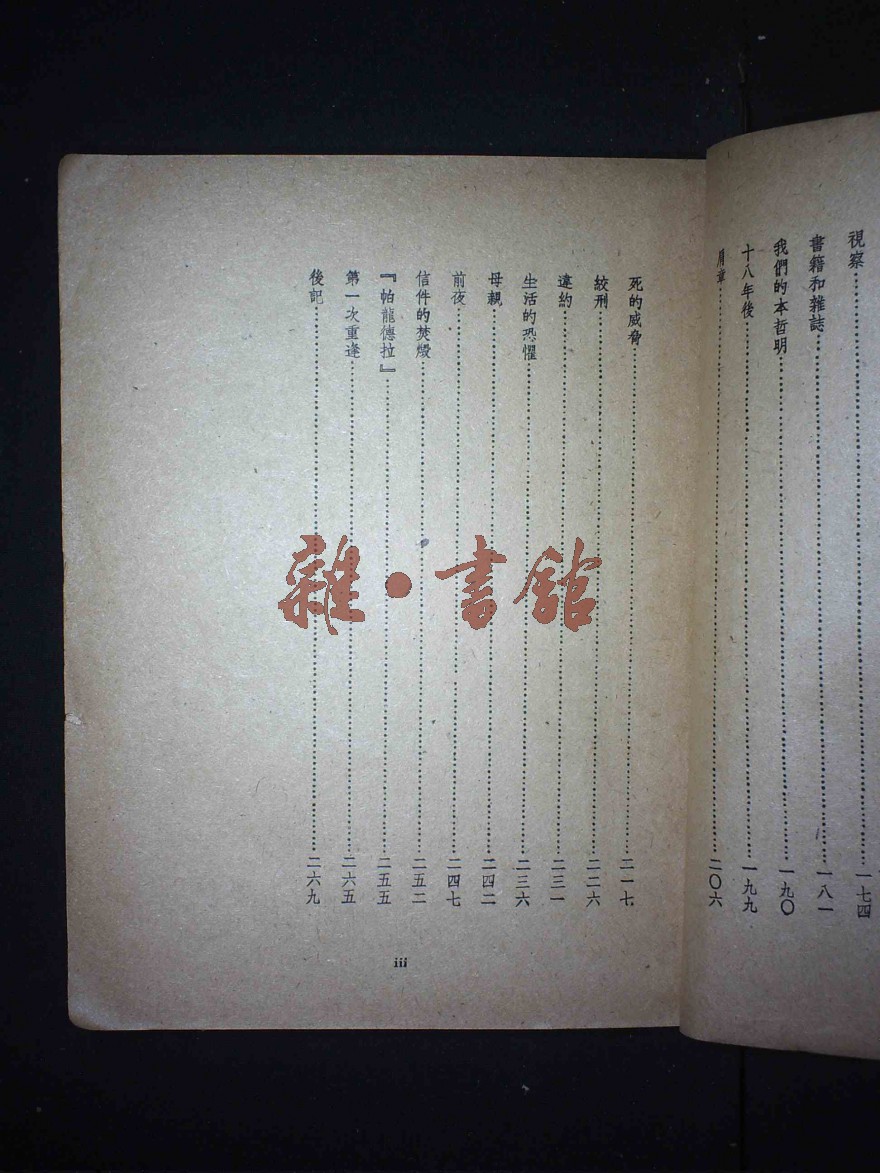 視察⋯⋯一七四
書籍和雜誌⋯⋯一八一
我們的本哲明⋯⋯一九〇
十八年後⋯⋯一九九
肩章⋯⋯二〇六
死的威脅⋯⋯二一七
絞刑⋯⋯二二六
違約⋯⋯二三一
生活的恐懼⋯⋯二三六
母親⋯⋯二四二
前夜⋯⋯二四七
信件的焚燬⋯⋯二五二
『帕龍德拉』⋯⋯二五五
第一次重逢⋯⋯二六五
後記⋯⋯二六九
iii
雜·書館